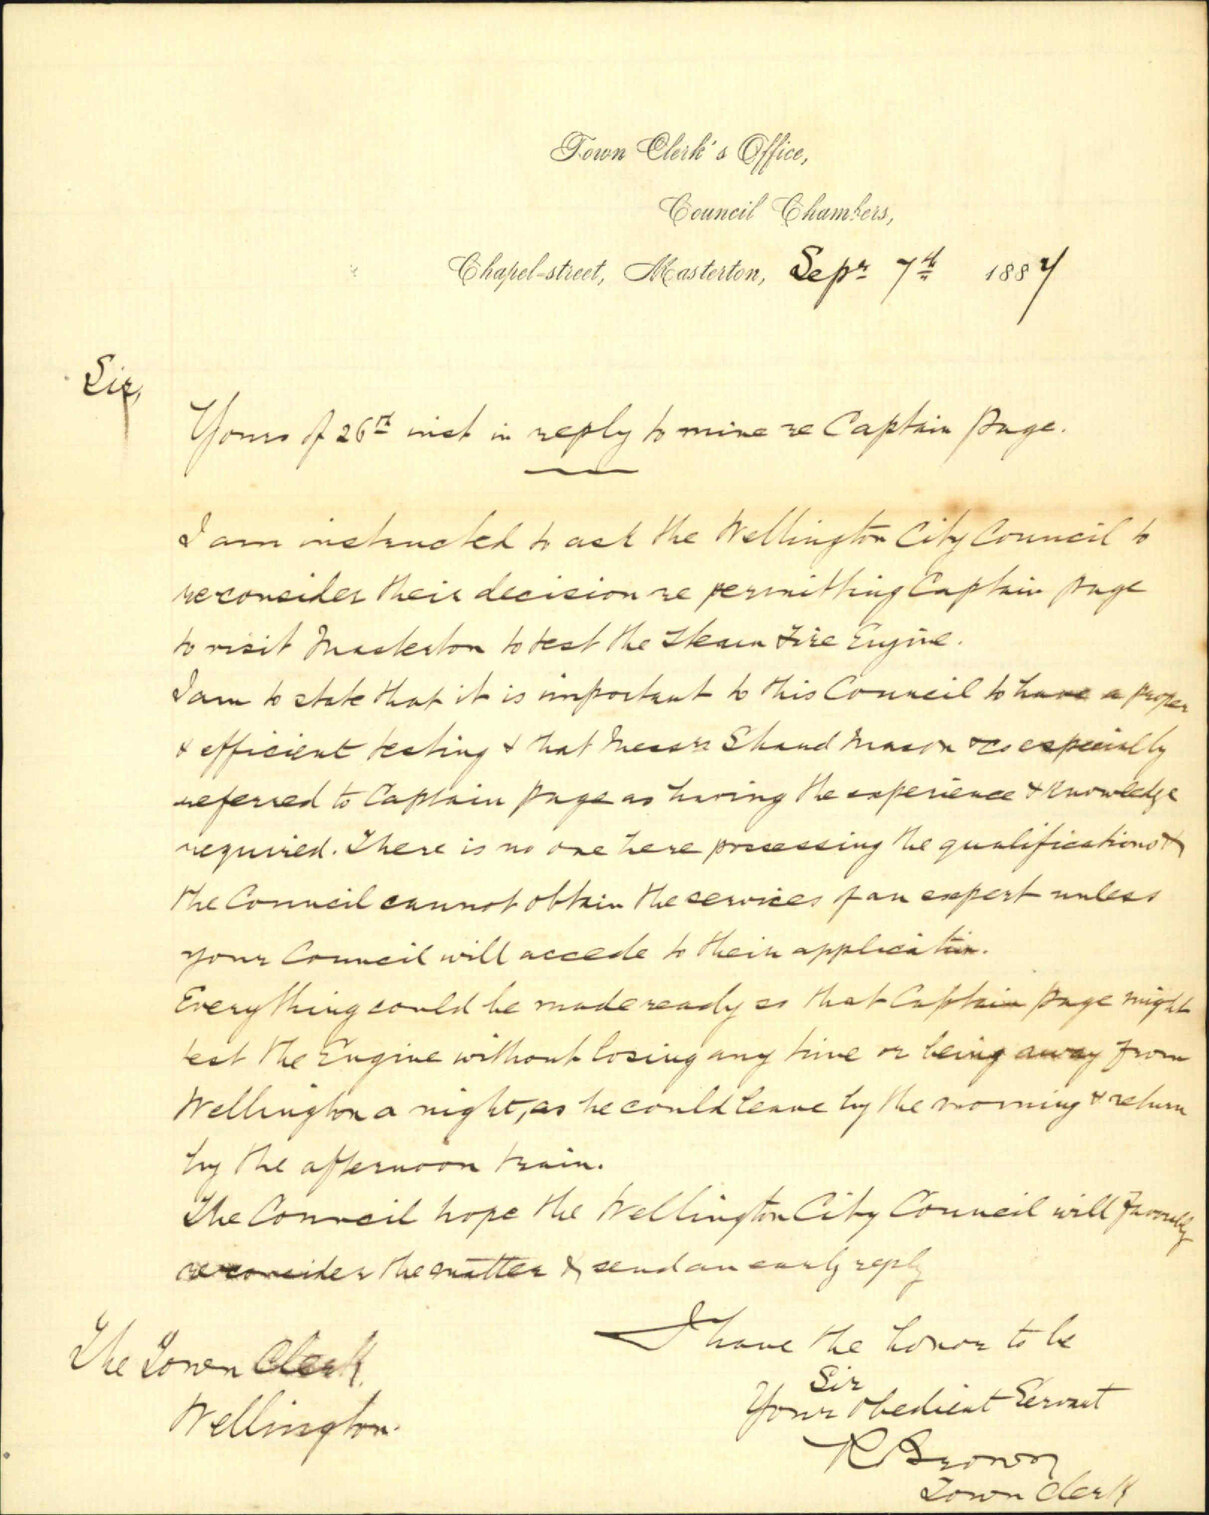 Town Clerk's Office,
Council Chambers,
Chapel-street, Masterton, Sepr 7th 1887
Sir,
Yours of 26th inst in reply to mine re Captain Page.
I am instructed to ask the Wellington City Council to
reconsider their decision re permitting Captain Page
to visit Masterton to test the Steam Fire Engine.
I am to state that it is important to this Council to have a proper
& efficient testing & that Messrs Shand Mason & Co especially
referred to Captain Page as having the experience & knowledge
required. There is no one here possessing the qualifications &
the Council cannot obtain the services of an expert unless
your Council will accede to their application.
Everything could be made ready so that Captain Page might
test the Engine without losing any time or being away from
Wellington a night, as he could leave by the morning & return
by the afternoon train.
The Council hope the Wellington City Council will favorably
reconsider the matter & send an early reply
I have the honor to be
Sir
Your obedient Servant
R Brown
Town Clerk
The Town Clerk
Wellington.